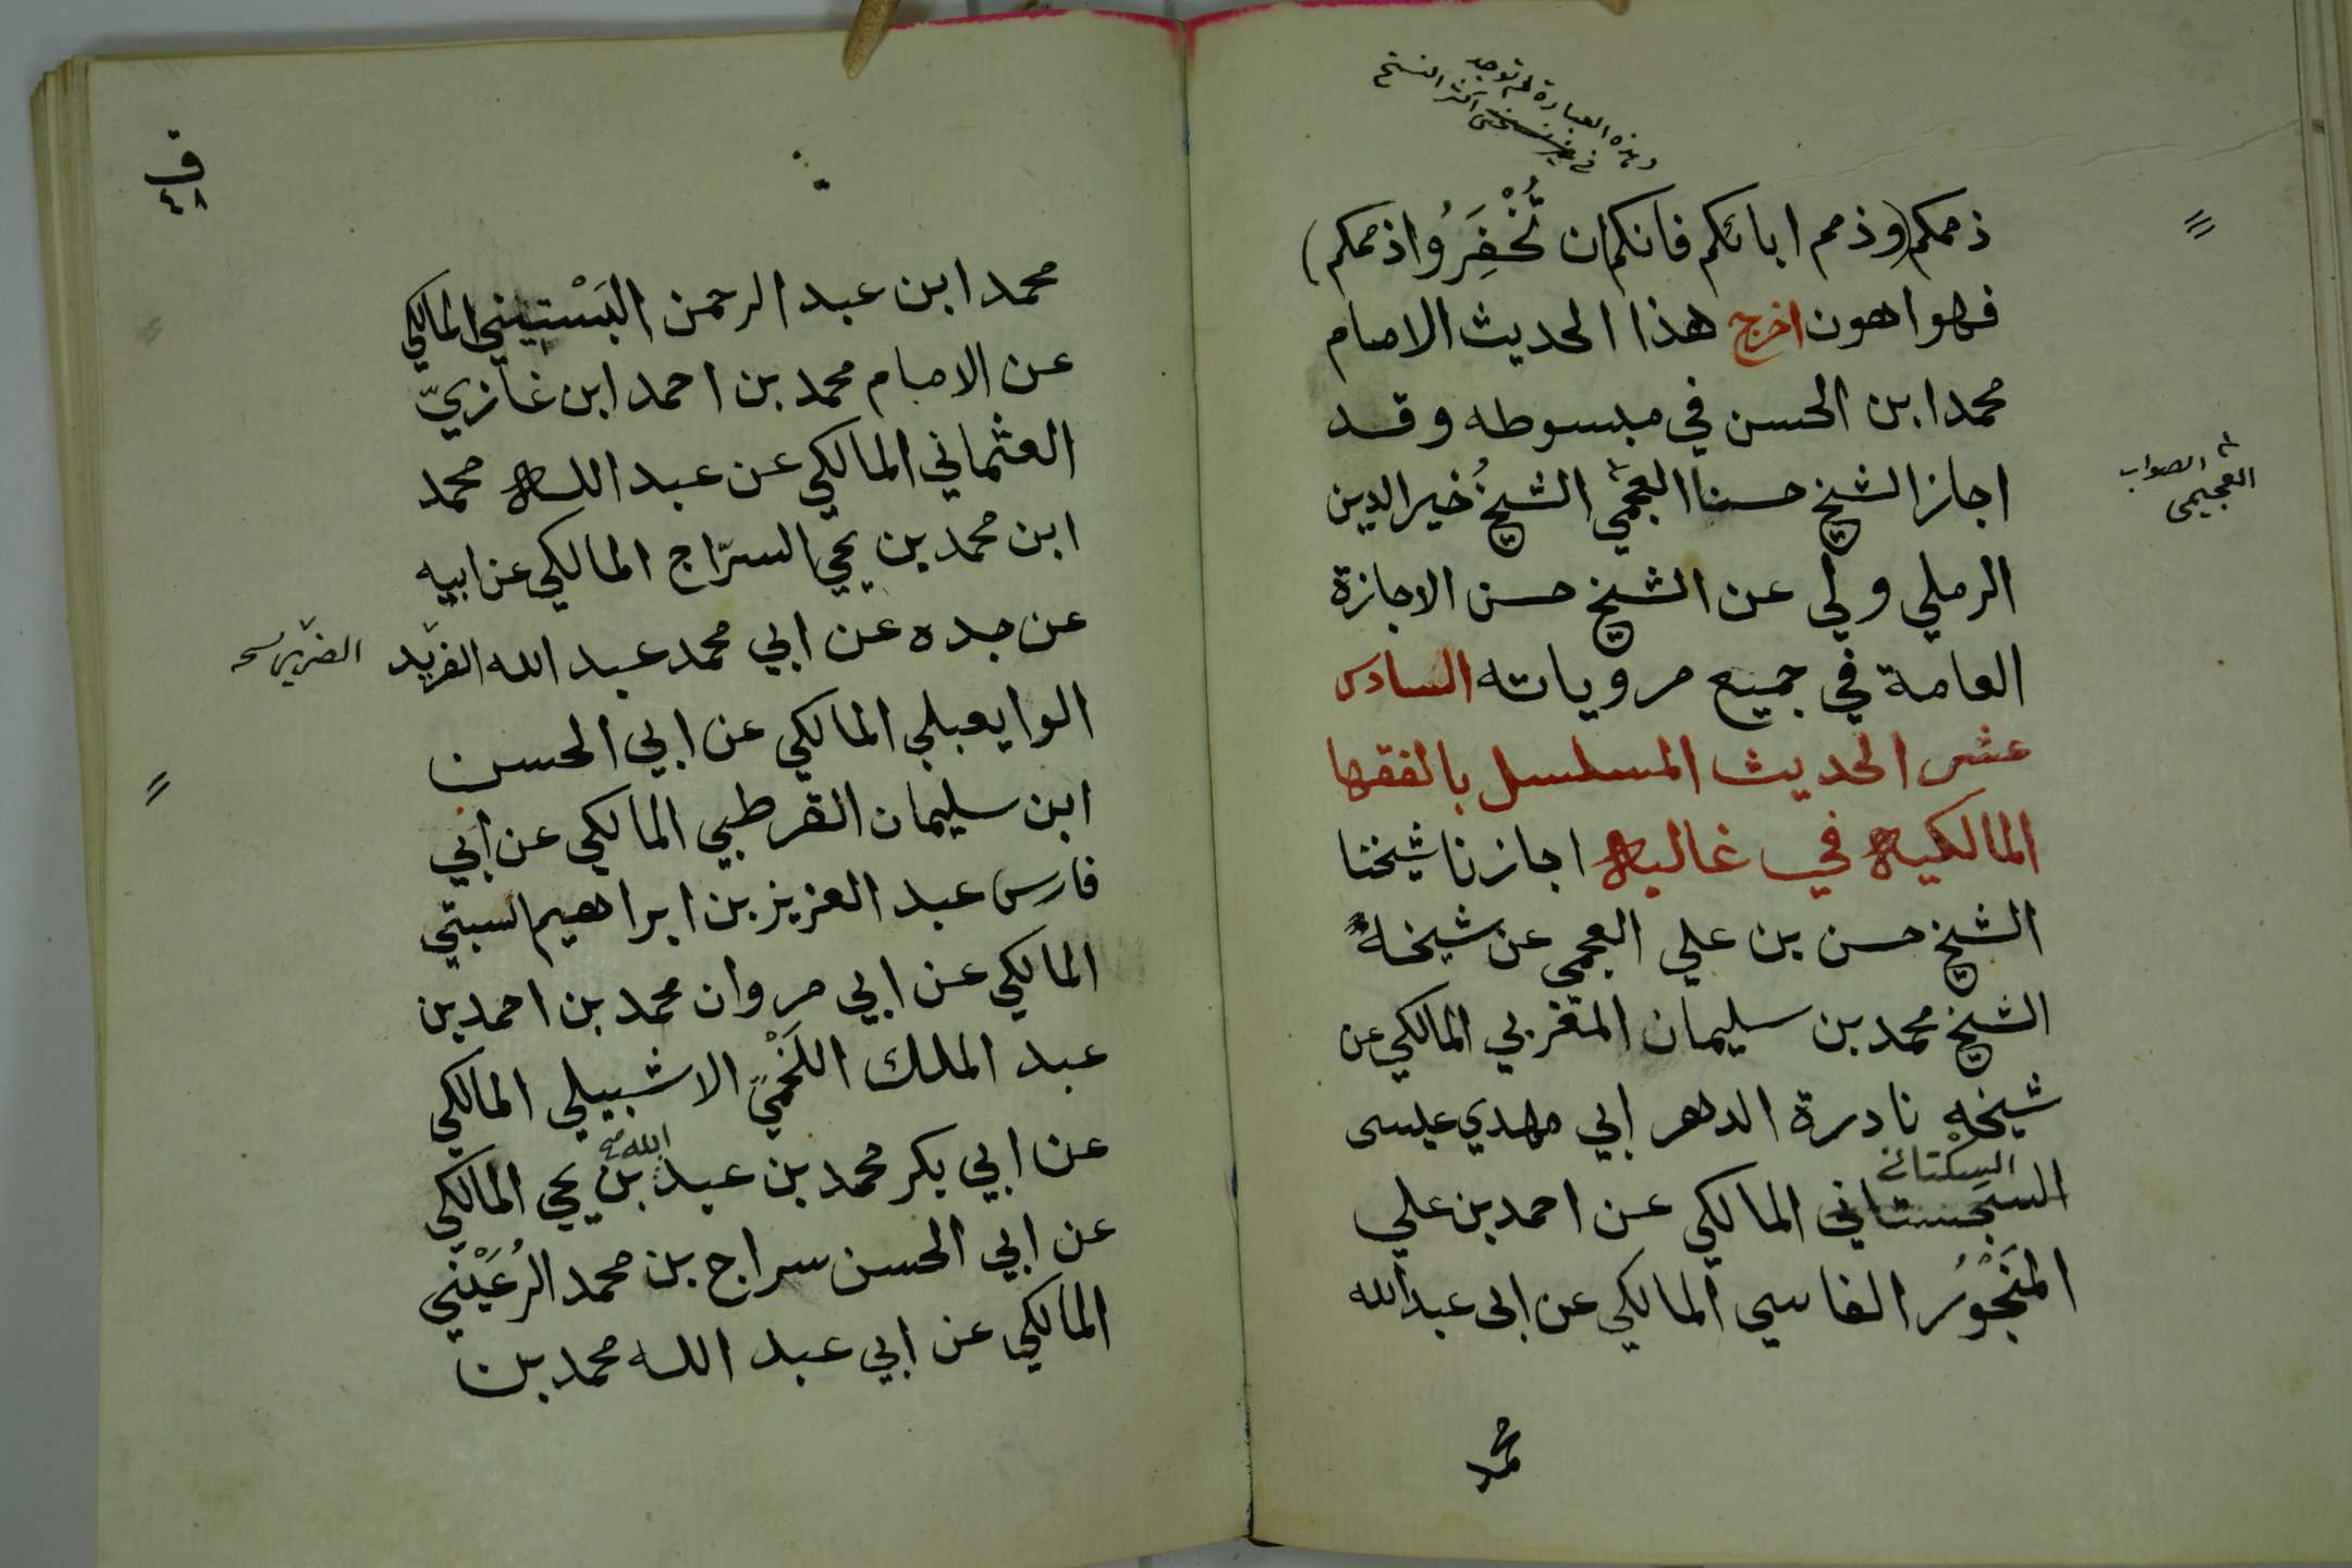 وهذه العبارة لم توجد
في غير نسختي اكثر النسخ
ذممكم (وذمم ابائكم فانكم ان تُخْفِرُوا ذممكم)
فهو اهون اخرج هذا الحديث الامام
محمد ابن الحسن في مبسوطه وقد
اجاز الشيخ حسنا العجمي الشيخُ خير الدين
العجيمي الصواب
الرملي ولي عن الشيخ حسن الاجازة
العامة في جميع مروياته السادس
عشر الحديث المسلسل بالفقها
المالكيه في غالبه اجازنا شيخنا
الشيخ حسن بن علي العجمي عن شيخه
الشيخ محمد بن سليمان المغربي المالكي عن
شيخه نادرة الدهر ابي مهدي عيسى
السكتاني
السجستاني المالكي عن احمد بن علي
المَنْجُوُر الفاسي المالكي عن ابى عبد الله
محمد
ق
٤٨
محمد ابن عبد الرحمن اليَسْتِيني المالكي
عن الامام محمد بن احمد ابن غازيّ
العثماني المالكي عن عبد الله محمد
ابن محمد بن يحي السرّاج المالكي عن ابيه
عن جده عن ابي محمد عبد الله الفريد
الضرير
الوايعبلي المالكي عن ابي الحسن
ابن سليمان القرطبي المالكي عن ابي
فارس عبد العزيز بن ابراهيم السبتي
المالكي عن ابي مروان محمد بن احمد بن
عبد الملك اللَخْمي الاشبيلي المالكي
عن ابي بكر محمد بن عبد الله بن يحي المالكي
عن ابي الحسن سراج بن محمد الرُعَيْني
المالكي عن ابي عبد الله محمد بن